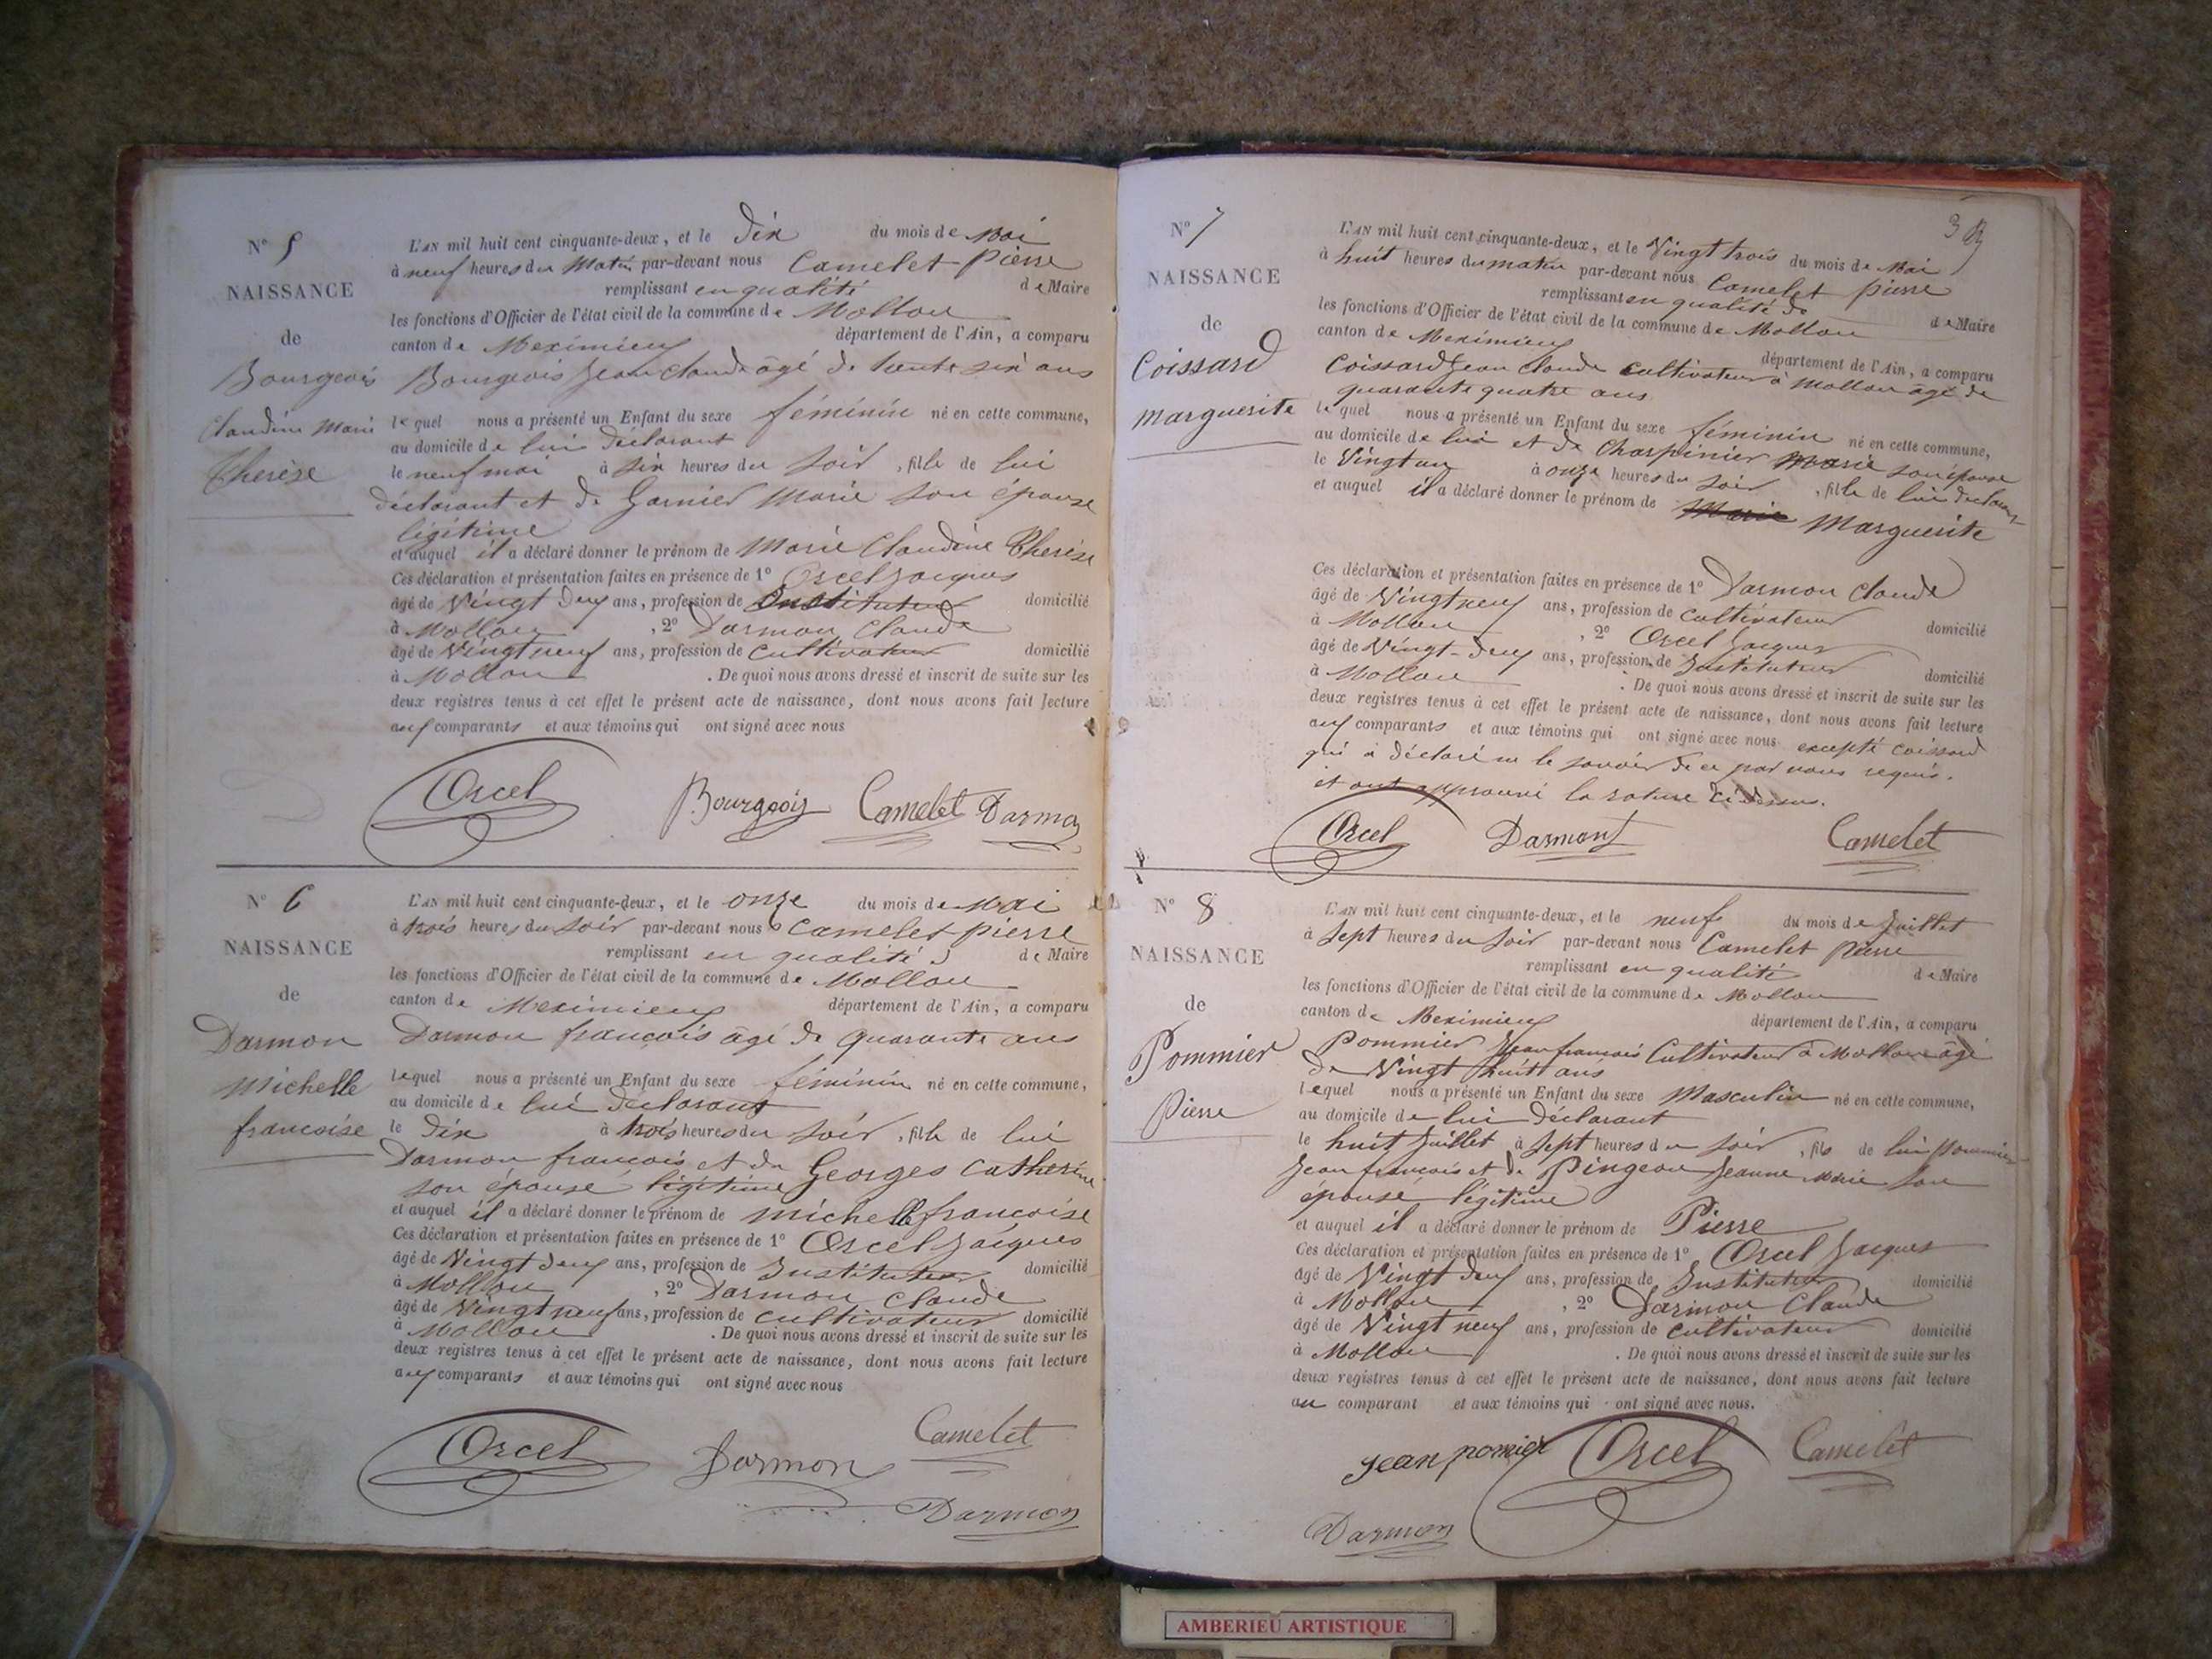 N° 5
NAISSANCE
de
Bourgeois
Claudine Marie
Therèse
L'AN mil huit cent cinquante-deux, et le dix du mois de Mai
à neuf heures du Matin par-devant nous Camelet Pierre
remplissant en qualité de Maire
les fonctions d'Officier de l'état civil de la commune de Mollon
canton de Meximieux département de l'Ain, a comparu
Bourgeois Jean Claude âgé de trente six ans
lequel nous a présenté un Enfant du sexe féminin né en cette commune,
au domicile de lui déclarant
le neuf mai à six heures du soir, fille de lui
déclarant et de Garnier Marie son épouse
légitime
et auquel il a déclaré donner le prénom de Marie Claudine Therèse
Ces déclaration et présentation faites en présence de 1° Orcel Jacques
âgé de Vingt deux ans, profession de Instituteur domicilié
à Mollon, 2° Darmon Claude
âgé de Vingt neuf ans, profession de Cultivateur domicilié
à Mollon. De quoi nous avons dressé et inscrit de suite sur les
deux registres tenus à cet effet le présent acte de naissance, dont nous avons fait lecture
aux comparants et aux témoins qui ont signé avec nous
Orcel Bourgeois Camelet Darmon
N° 6
NAISSANCE
de
Darmon
Michelle
francoise
L'AN mil huit cent cinquante-deux, et le onze du mois de Mai
à trois heures du soir par-devant nous Camelet pierre
remplissant en qualité de Maire
les fonctions d'Officier de l'état civil de la commune de Mollon
canton de Meximieux département de l'Ain, a comparu
Darmon francois âgé de quarante ans
lequel nous a présenté un Enfant du sexe féminin né en cette commune,
au domicile de lui déclarant
le dix à trois heures du soir, fille de lui
Darmon francois et de Georges Catherine
son épouse légitime
et auquel il a déclaré donner le prénom de michelle francoise
Ces déclaration et présentation faites en présence de 1° Orcel Jacques
âgé de Vingt deux ans, profession de Instituteur domicilié
à Mollon, 2° Darmon Claude
âgé de Vingt neuf ans, profession de cultivateur domicilié
à Mollon. De quoi nous avons dressé et inscrit de suite sur les
deux registres tenus à cet effet le présent acte de naissance, dont nous avons fait lecture
aux comparants et aux témoins qui ont signé avec nous
Orcel Darmon Camelet
Darmon
3
N° 7
NAISSANCE
de
Coissard
marguerite
L'AN mil huit cent cinquante-deux, et le Vingt trois du mois de Mai
à huit heures du matin par-devant nous Camelet pierre
remplissant en qualité de de Maire
les fonctions d'Officier de l'état civil de la commune de Mollon
canton de Meximieux département de l'Ain, a comparu
Coissard Jean Claude Cultivateur à Mollon âgé de
quarante quatre ans
lequel nous a présenté un Enfant du sexe féminin né en cette commune,
au domicile de lui et de Charpinier Marie son épouse
le Vingt un à onze heures du soir, fille de lui déclarant
et auquel il a déclaré donner le prénom de Marie Marguerite
Ces déclaration et présentation faites en présence de 1° Darmon Claude
âgé de Vingt neuf ans, profession de cultivateur domicilié
à Mollon, 2° Orcel Jacques
âgé de Vingt-deux ans, profession de Instituteur domicilié
à Mollon. De quoi nous avons dressé et inscrit de suite sur les
deux registres tenus à cet effet le présent acte de naissance, dont nous avons fait lecture
aux comparants et aux témoins qui ont signé avec nous excepté coissard
qui a déclaré ne le savoir de ce par nous requis.
et ont approuvé la rature ci dessus.
Orcel Darmont Camelet
N° 8
NAISSANCE
de
Pommier
Pierre
L'AN mil huit cent cinquante-deux, et le neuf du mois de Juillet
à sept heures du soir par-devant nous Camelet Pierre
remplissant en qualité de Maire
les fonctions d'Officier de l'état civil de la commune de Mollon
canton de Meximieux département de l'Ain, a comparu
Pommier Jean francois Cultivateur à Mollon âgé
de Vingt huit ans
lequel nous a présenté un Enfant du sexe Masculin né en cette commune,
au domicile de lui déclarant
le huit Juillet à sept heures du soir, fils de lui Pommier
Jean francois et de Pingeon Jeanne Marie son
épouse légitime
et auquel il a déclaré donner le prénom de Pierre
Ces déclaration et présentation faites en présence de 1° Orcel Jacques
âgé de Vingt deux ans, profession de Instituteur domicilié
à Mollon, 2° Darmon Claude
âgé de Vingt neuf ans, profession de cultivateur domicilié
à Mollon. De quoi nous avons dressé et inscrit de suite sur les
deux registres tenus à cet effet le présent acte de naissance, dont nous avons fait lecture
au comparant et aux témoins qui ont signé avec nous.
Jean pomier Orcel Camelet
Darmon
AMBERIEU ARTISTIQUE